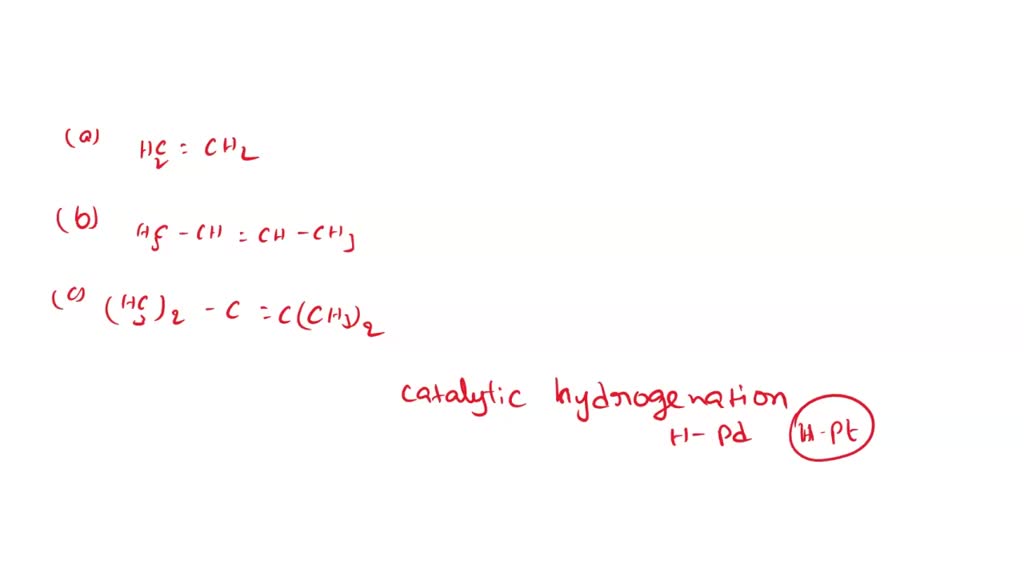 (a) H₂C = CH₂
(b) H₃C - CH = CH - CH₃
(c) (H₃C)₂ - C = C(CH₃)₂
catalytic hydrogenation
H - Pd H - Pt